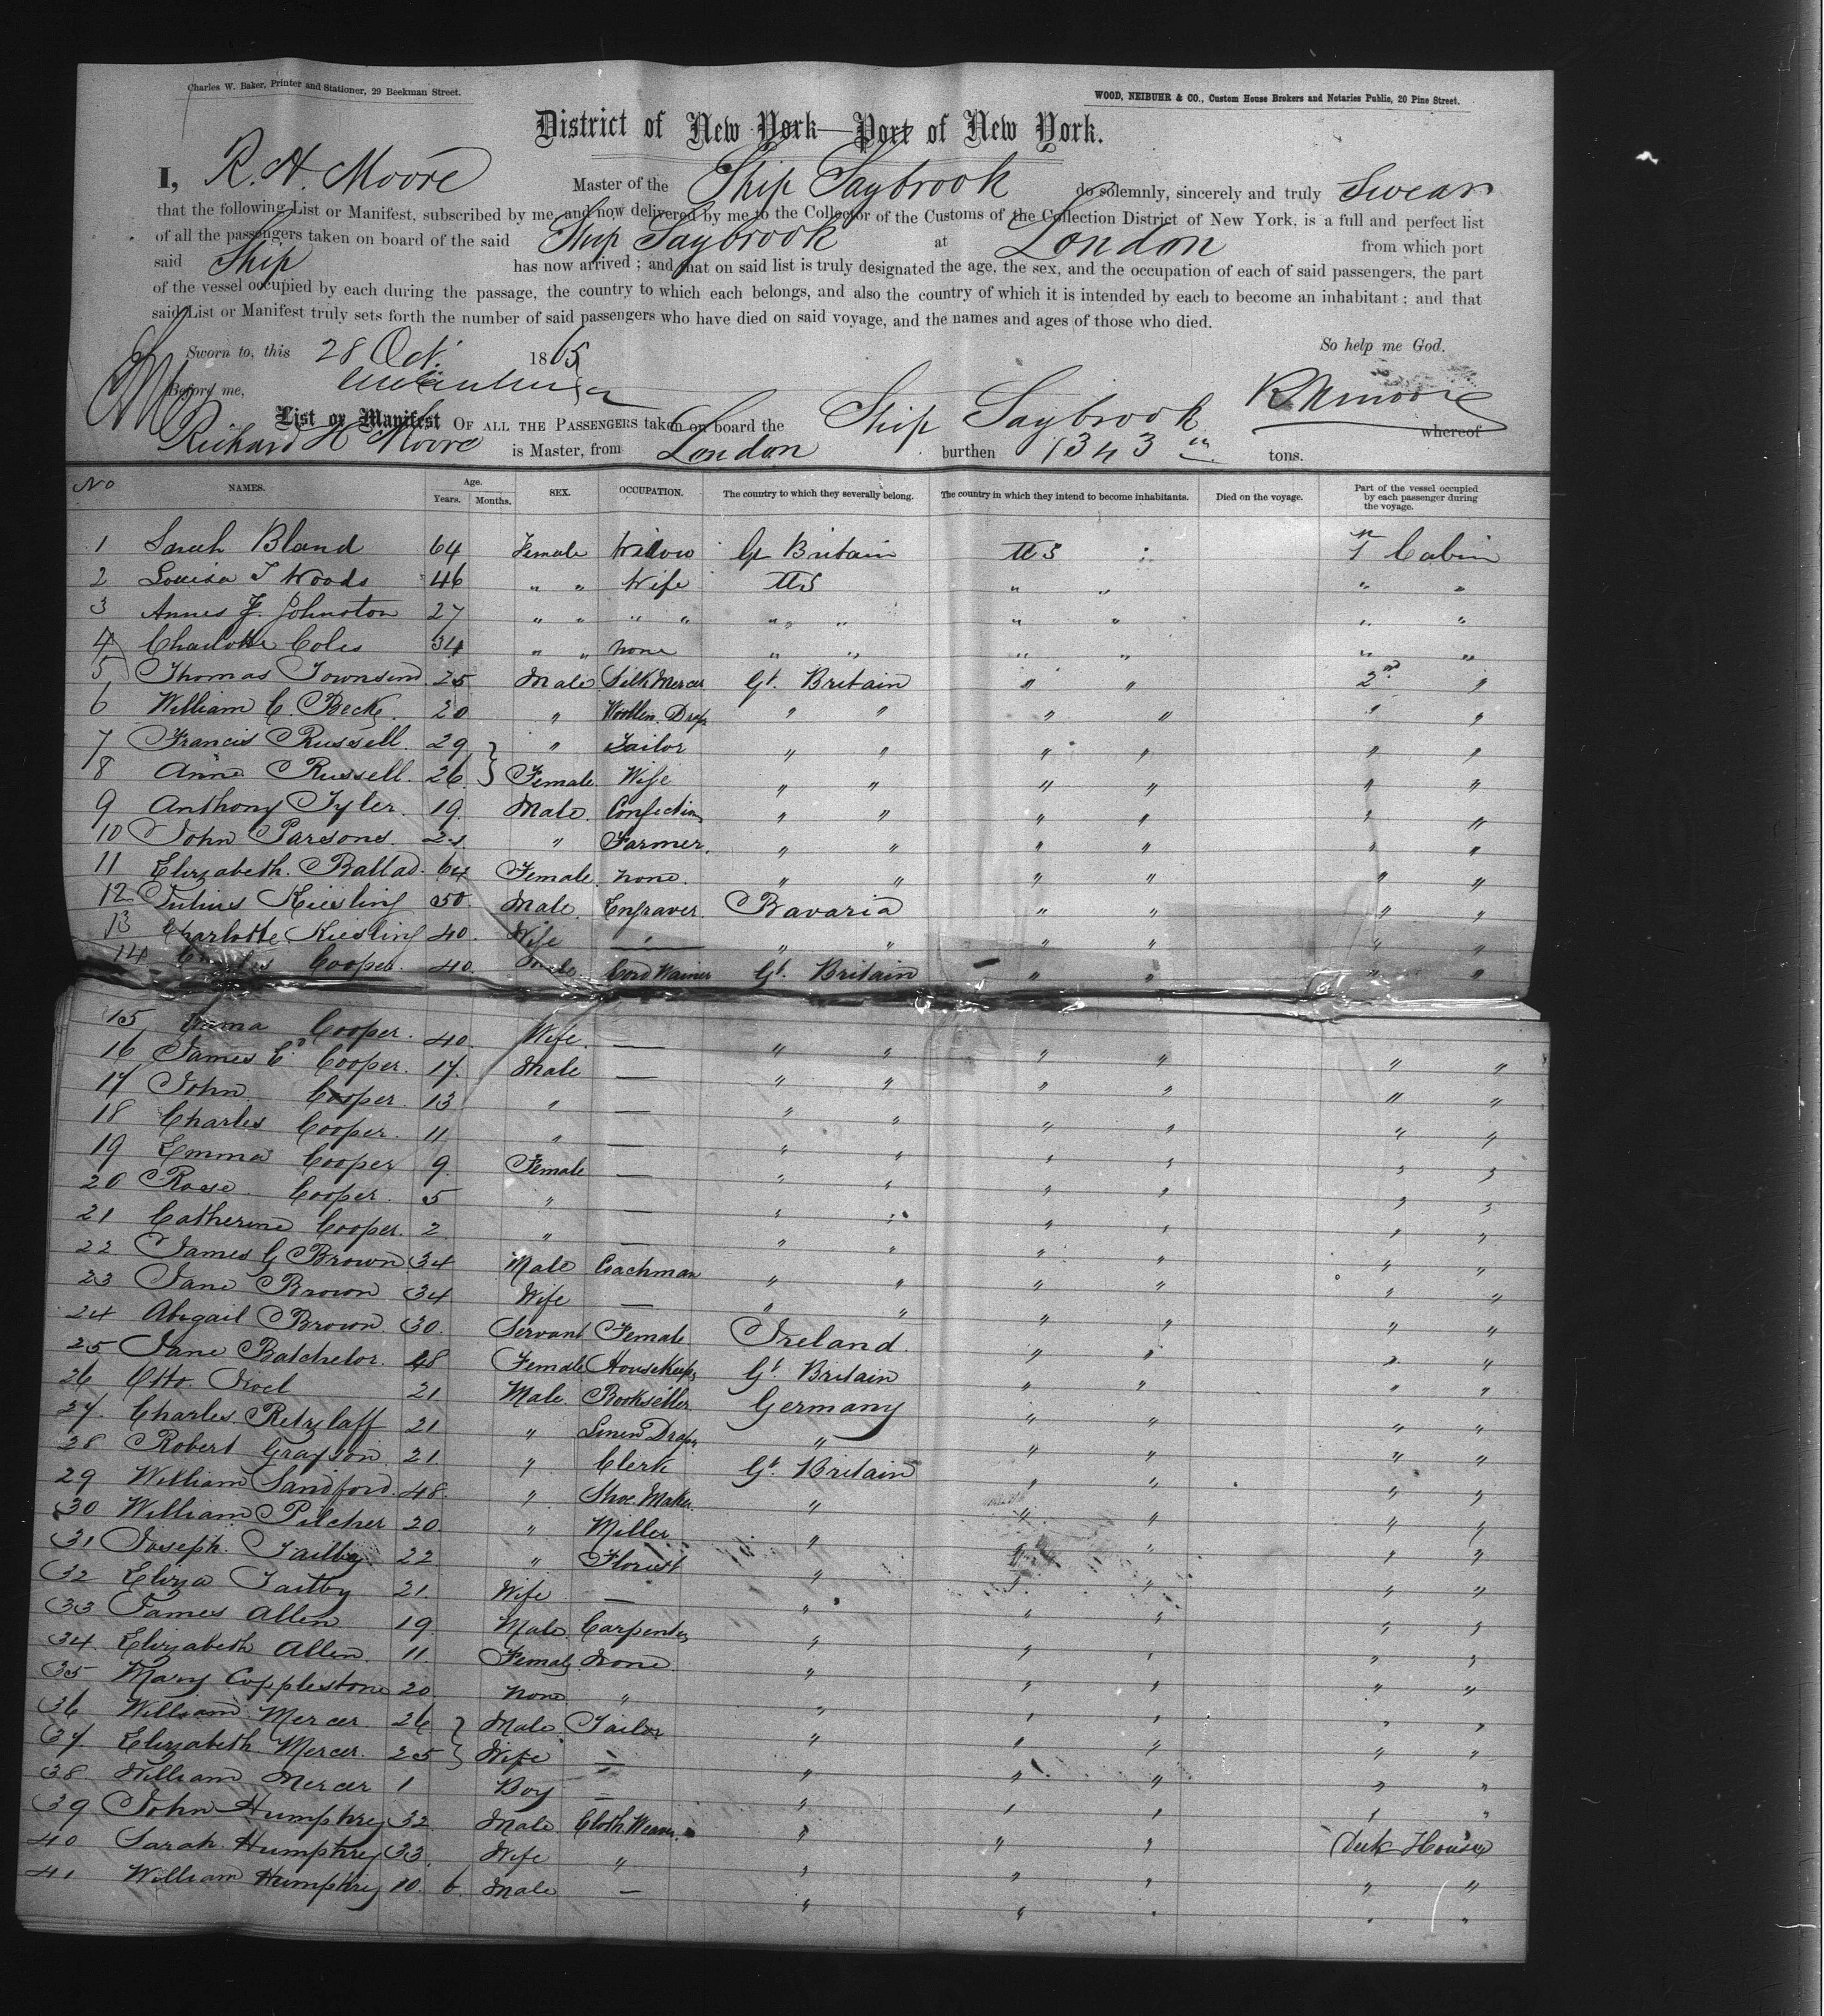 Charles W. Baker, Printer and Stationer, 29 Beekman Street.
WOOD, NEIBUHR & CO., Custom House Brokers and Notaries Public, 20 Pine Street.
District of New York—Port of New York.
I, R. H. Moore Master of the Ship Saybrook do solemnly, sincerely and truly Swear
that the following List or Manifest, subscribed by me, and now delivered by me to the Collector of the Customs of the Collection District of New York, is a full and perfect list
of all the passengers taken on board of the said Ship Saybrook at London from which port
said Ship has now arrived; and that on said list is truly designated the age, the sex, and the occupation of each of said passengers, the part
of the vessel occupied by each during the passage, the country to which each belongs, and also the country of which it is intended by each to become an inhabitant; and that
said List or Manifest truly sets forth the number of said passengers who have died on said voyage, and the names and ages of those who died.
Sworn to, this 28 Oct. 1865 So help me God.
Before me, R H Moore
List or Manifest OF ALL THE PASSENGERS taken on board the Ship Saybrook whereof
Richard H Moore is Master, from London burthen 1343 tons.
No NAMES. Age. Years. Months. SEX. OCCUPATION. The country to which they severally belong. The country in which they intend to become inhabitants. Died on the voyage. Part of the vessel occupied by each passenger during the voyage.
1 Sarah Bland 64 Female Widow Gt Britain US 1st Cabin
2 Louisa T Woods 46 " " Wife US " " " "
3 Annes F. Johnston 27 " " " " " " " " " "
4 Charlotte Coles 34 " " none " " " " " "
5 Thomas Townsend 25 Male Silk Mercer Gt. Britain " " 2nd "
6 William C. Beck 20 " Woollen Drap " " " " " "
7 Francis Russell 29 " Tailor " " " " " "
8 Anne Russell 26 Female Wife " " " " " "
9 Anthony Tyler 19 Male Confection " " " " " "
10 John Parsons 21 " Farmer " " " " " "
11 Elizabeth Ballad 64 Female none " " " " " "
12 Julius Kiesling 50 Male Engraver Bavaria " " " "
13 Charlotte Kiesling 40 Wife — " " " " " "
14 Charles Cooper 40 Male Cord Wainer Gt. Britain " " " "
15 Emma Cooper 40 Wife — " " " " " "
16 James C. Cooper 17 Male — " " " " " "
17 John Cooper 13 " — " " " " " "
18 Charles Cooper 11 " — " " " " " "
19 Emma Cooper 9 Female — " " " " " "
20 Rose Cooper 5 " — " " " " " "
21 Catherine Cooper 2 " — " " " " " "
22 James G Brown 34 Male Coachman " " " " " "
23 Jane Brown 34 Wife — " " " " " "
24 Abigail Brown 30 Servant Female Ireland " " " "
25 Jane Batchelor 48 Female HouseKeep Gt. Britain " " " "
26 Otto Koel 21 Male Bookseller Germany " " " "
27 Charles Retzlaff 21 " Linen Drap " " " " "
28 Robert Grayson 21 " Clerk Gt. Britain " " " "
29 William Sandford 48 " Shoe Maker " " " " "
30 William Pilcher 20 " Miller " " " " "
31 Joseph Tailby 22 " Florist " " " " "
32 Eliza Tailby 21 Wife — " " " " "
33 James Allen 19 Male Carpenter " " " " "
34 Elizabeth Allen 11 Female None " " " " "
35 Mary Copplestone 20 none " " " " " "
36 William Mercer 26 Male Tailor " " " " "
37 Elizabeth Mercer 25 Wife — " " " " "
38 William Mercer 1 Boy — " " " " "
39 John Humphrey 32 Male Cloth Weaver " " " Deck House
40 Sarah Humphrey 33 Wife " " " " " "
41 William Humphrey 10 6 Male — " " " " "